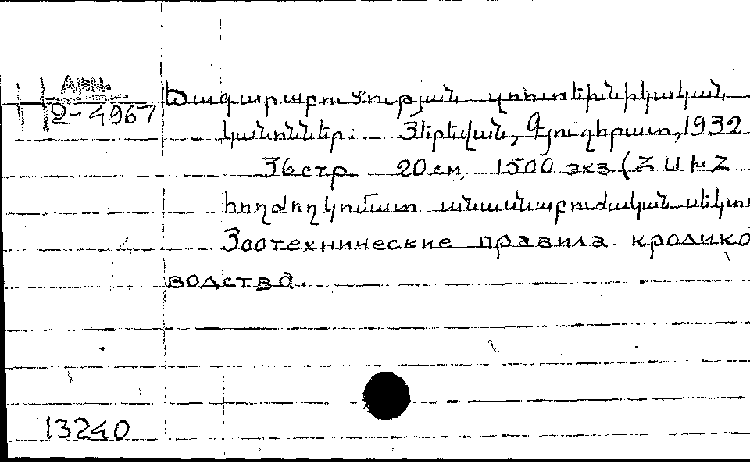 Арм.
2-4967
Ճագարաբուծության զոոտեխնիկական
կանոններ. Յերևան, Գյուղհրատ, 1932
36 стр. 20 см, 1500 экз (ՀՍԽՀ
հողժողկոմատ անասնաբուժական սեկտո
Зоотехнические правила кролико
водства.
13240